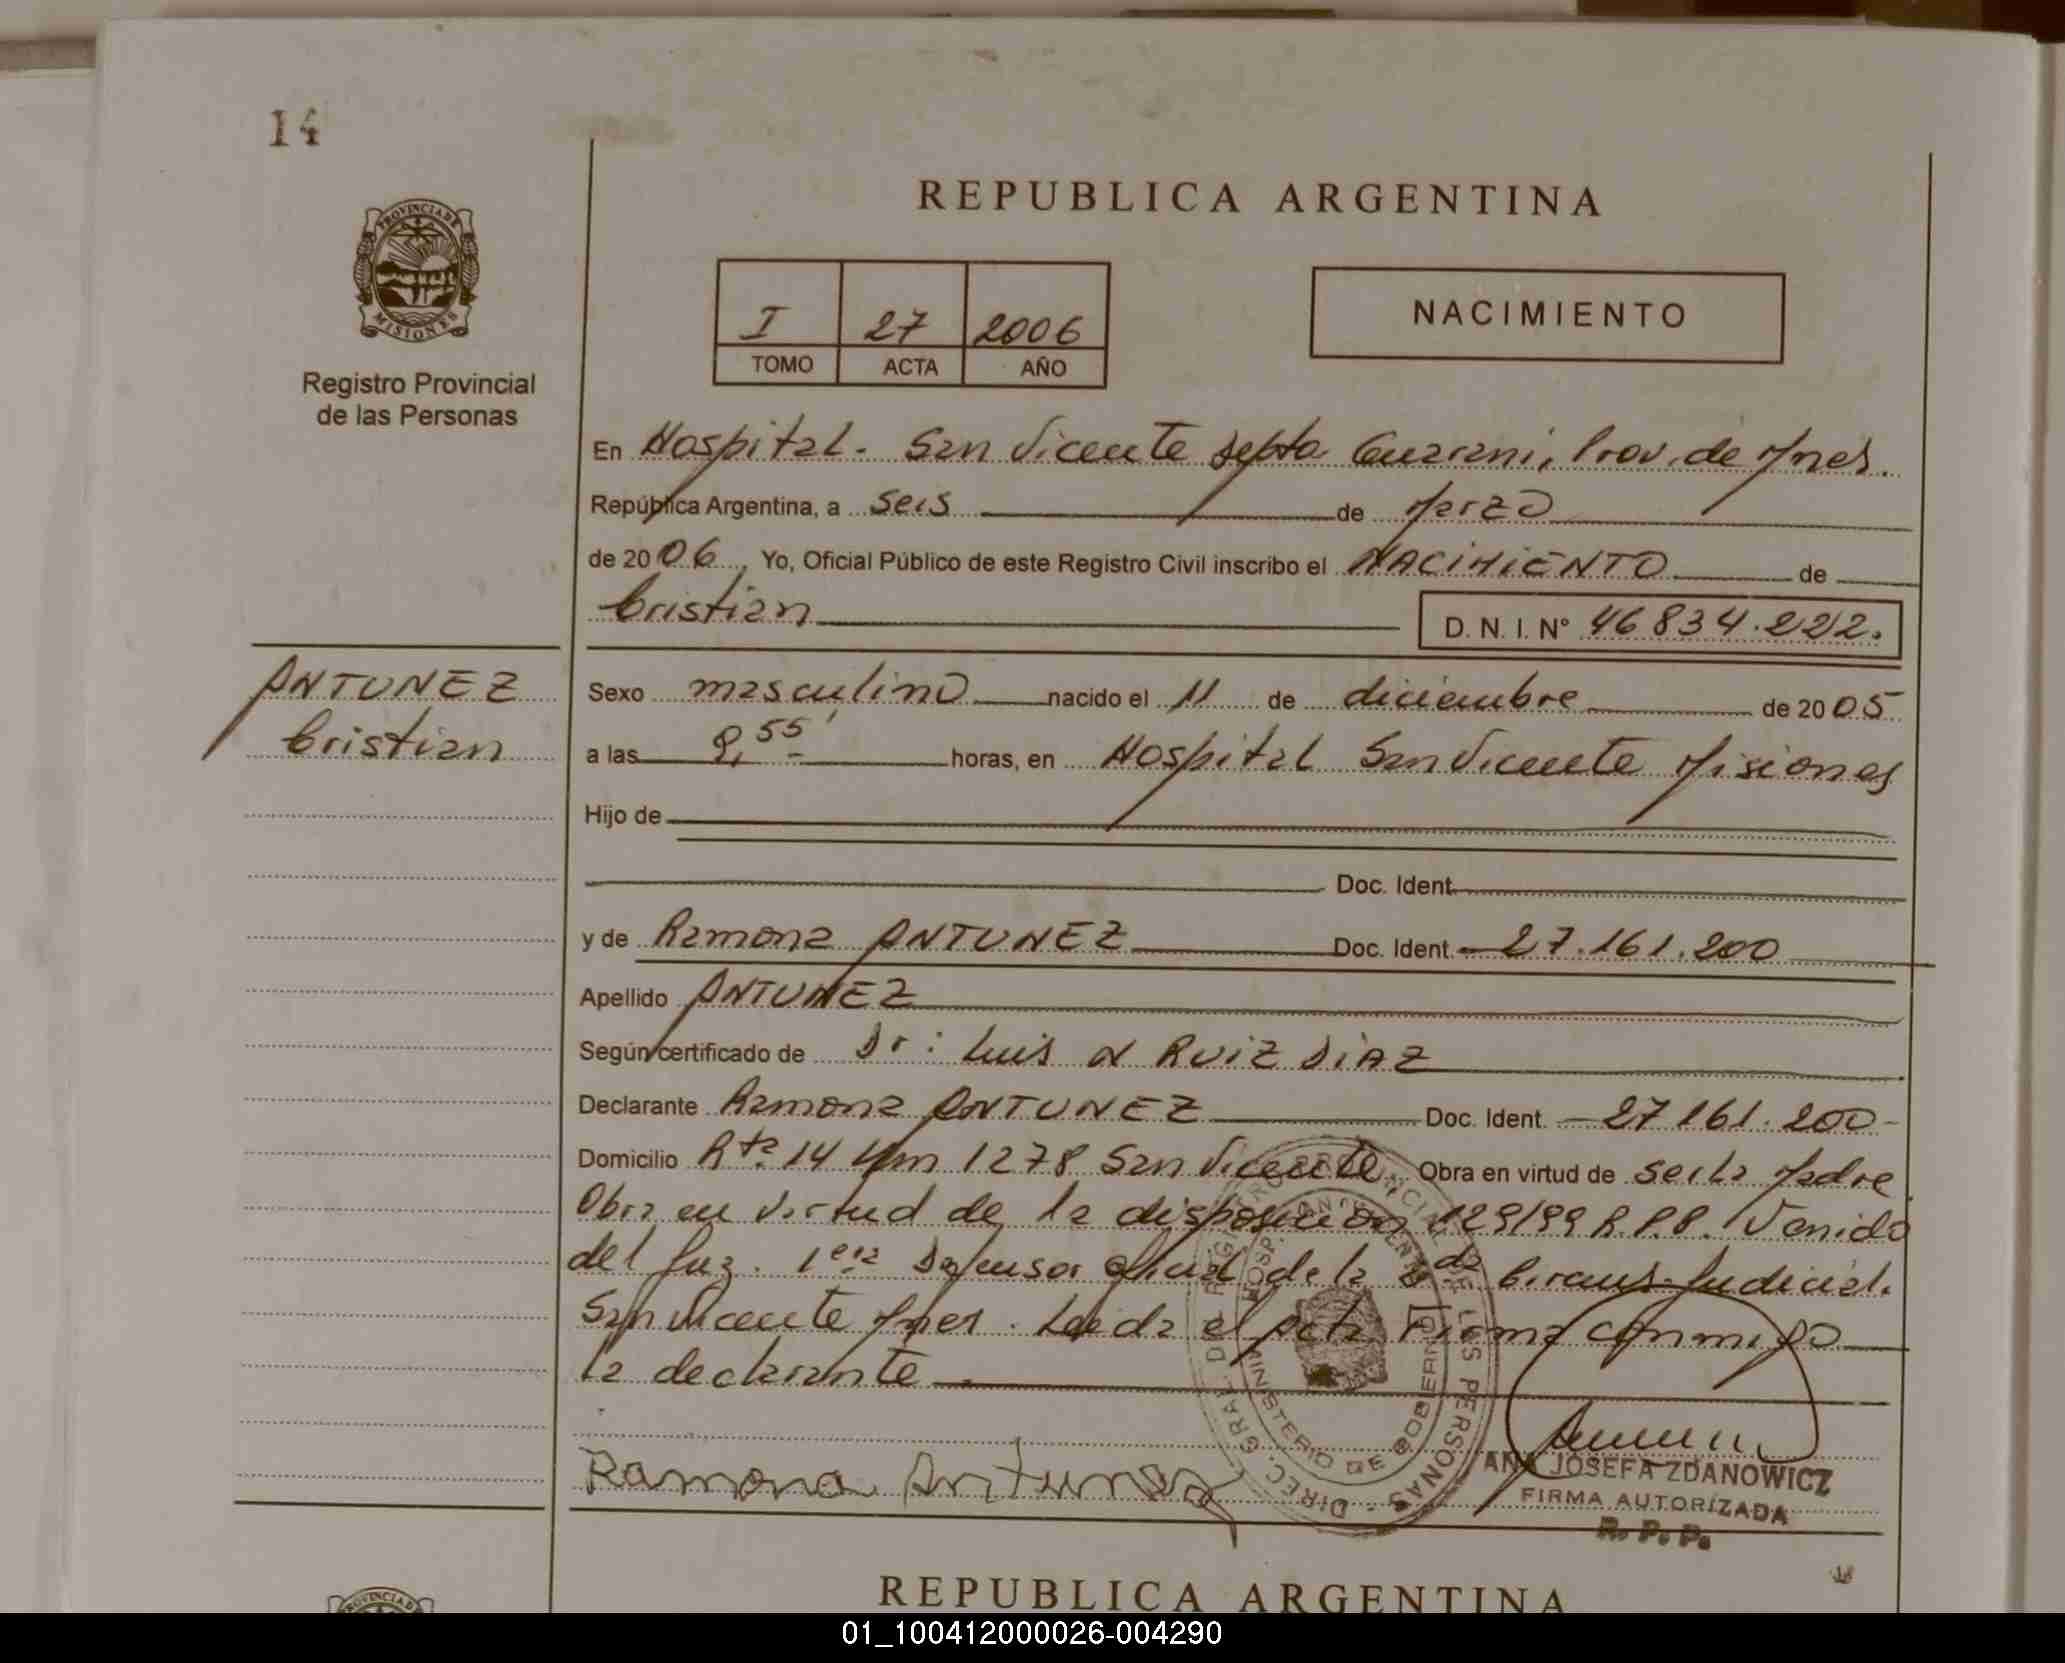 14
REPUBLICA ARGENTINA
PROVINCIA DE
MISIONES
Registro Provincial
de las Personas
I 27 2006
TOMO ACTA AÑO
NACIMIENTO
En Hospital. San Vicente Depto Guarani, Prov. de Mnes.
República Argentina, a seis de Marzo
de 2006, Yo, Oficial Público de este Registro Civil inscribo el NACIMIENTO de
Cristian D. N. I. Nº 46834.222.
ANTUNEZ
Cristian
Sexo masculino nacido el 11 de diciembre de 2005
a las 8,55' horas, en Hospital San Vicente Misiones
Hijo de
Doc. Ident.
y de Ramona ANTUNEZ Doc. Ident. 27.161.200
Apellido ANTUNEZ
Según certificado de Dr: Luis N RUIZ DIAZ
Declarante Ramona ANTUNEZ Doc. Ident. 27161.200
Domicilio Rta. 14 Km 1278 San Vicente, Obra en virtud de ser la Madre
Obra en virtud de la disposicion 129/99 R.P.P. Venido
del Juz. 1era Defensor oficial de la 2da Circuns. Judicial.
San Vicente Mnes. Leida el Acta Firma conmigo
la declarante.
Ramona Antunez
DIREC. GRAL. DEL REGISTRO PROVINCIAL DE LAS PERSONAS
HOSP. SAN VICENTE
MINISTERIO DE GOBIERNO
ANA JOSEFA ZDANOWICZ
FIRMA AUTORIZADA
R. P. P.
PROVINCIA D
REPUBLICA ARGENTINA
01_100412000026-004290